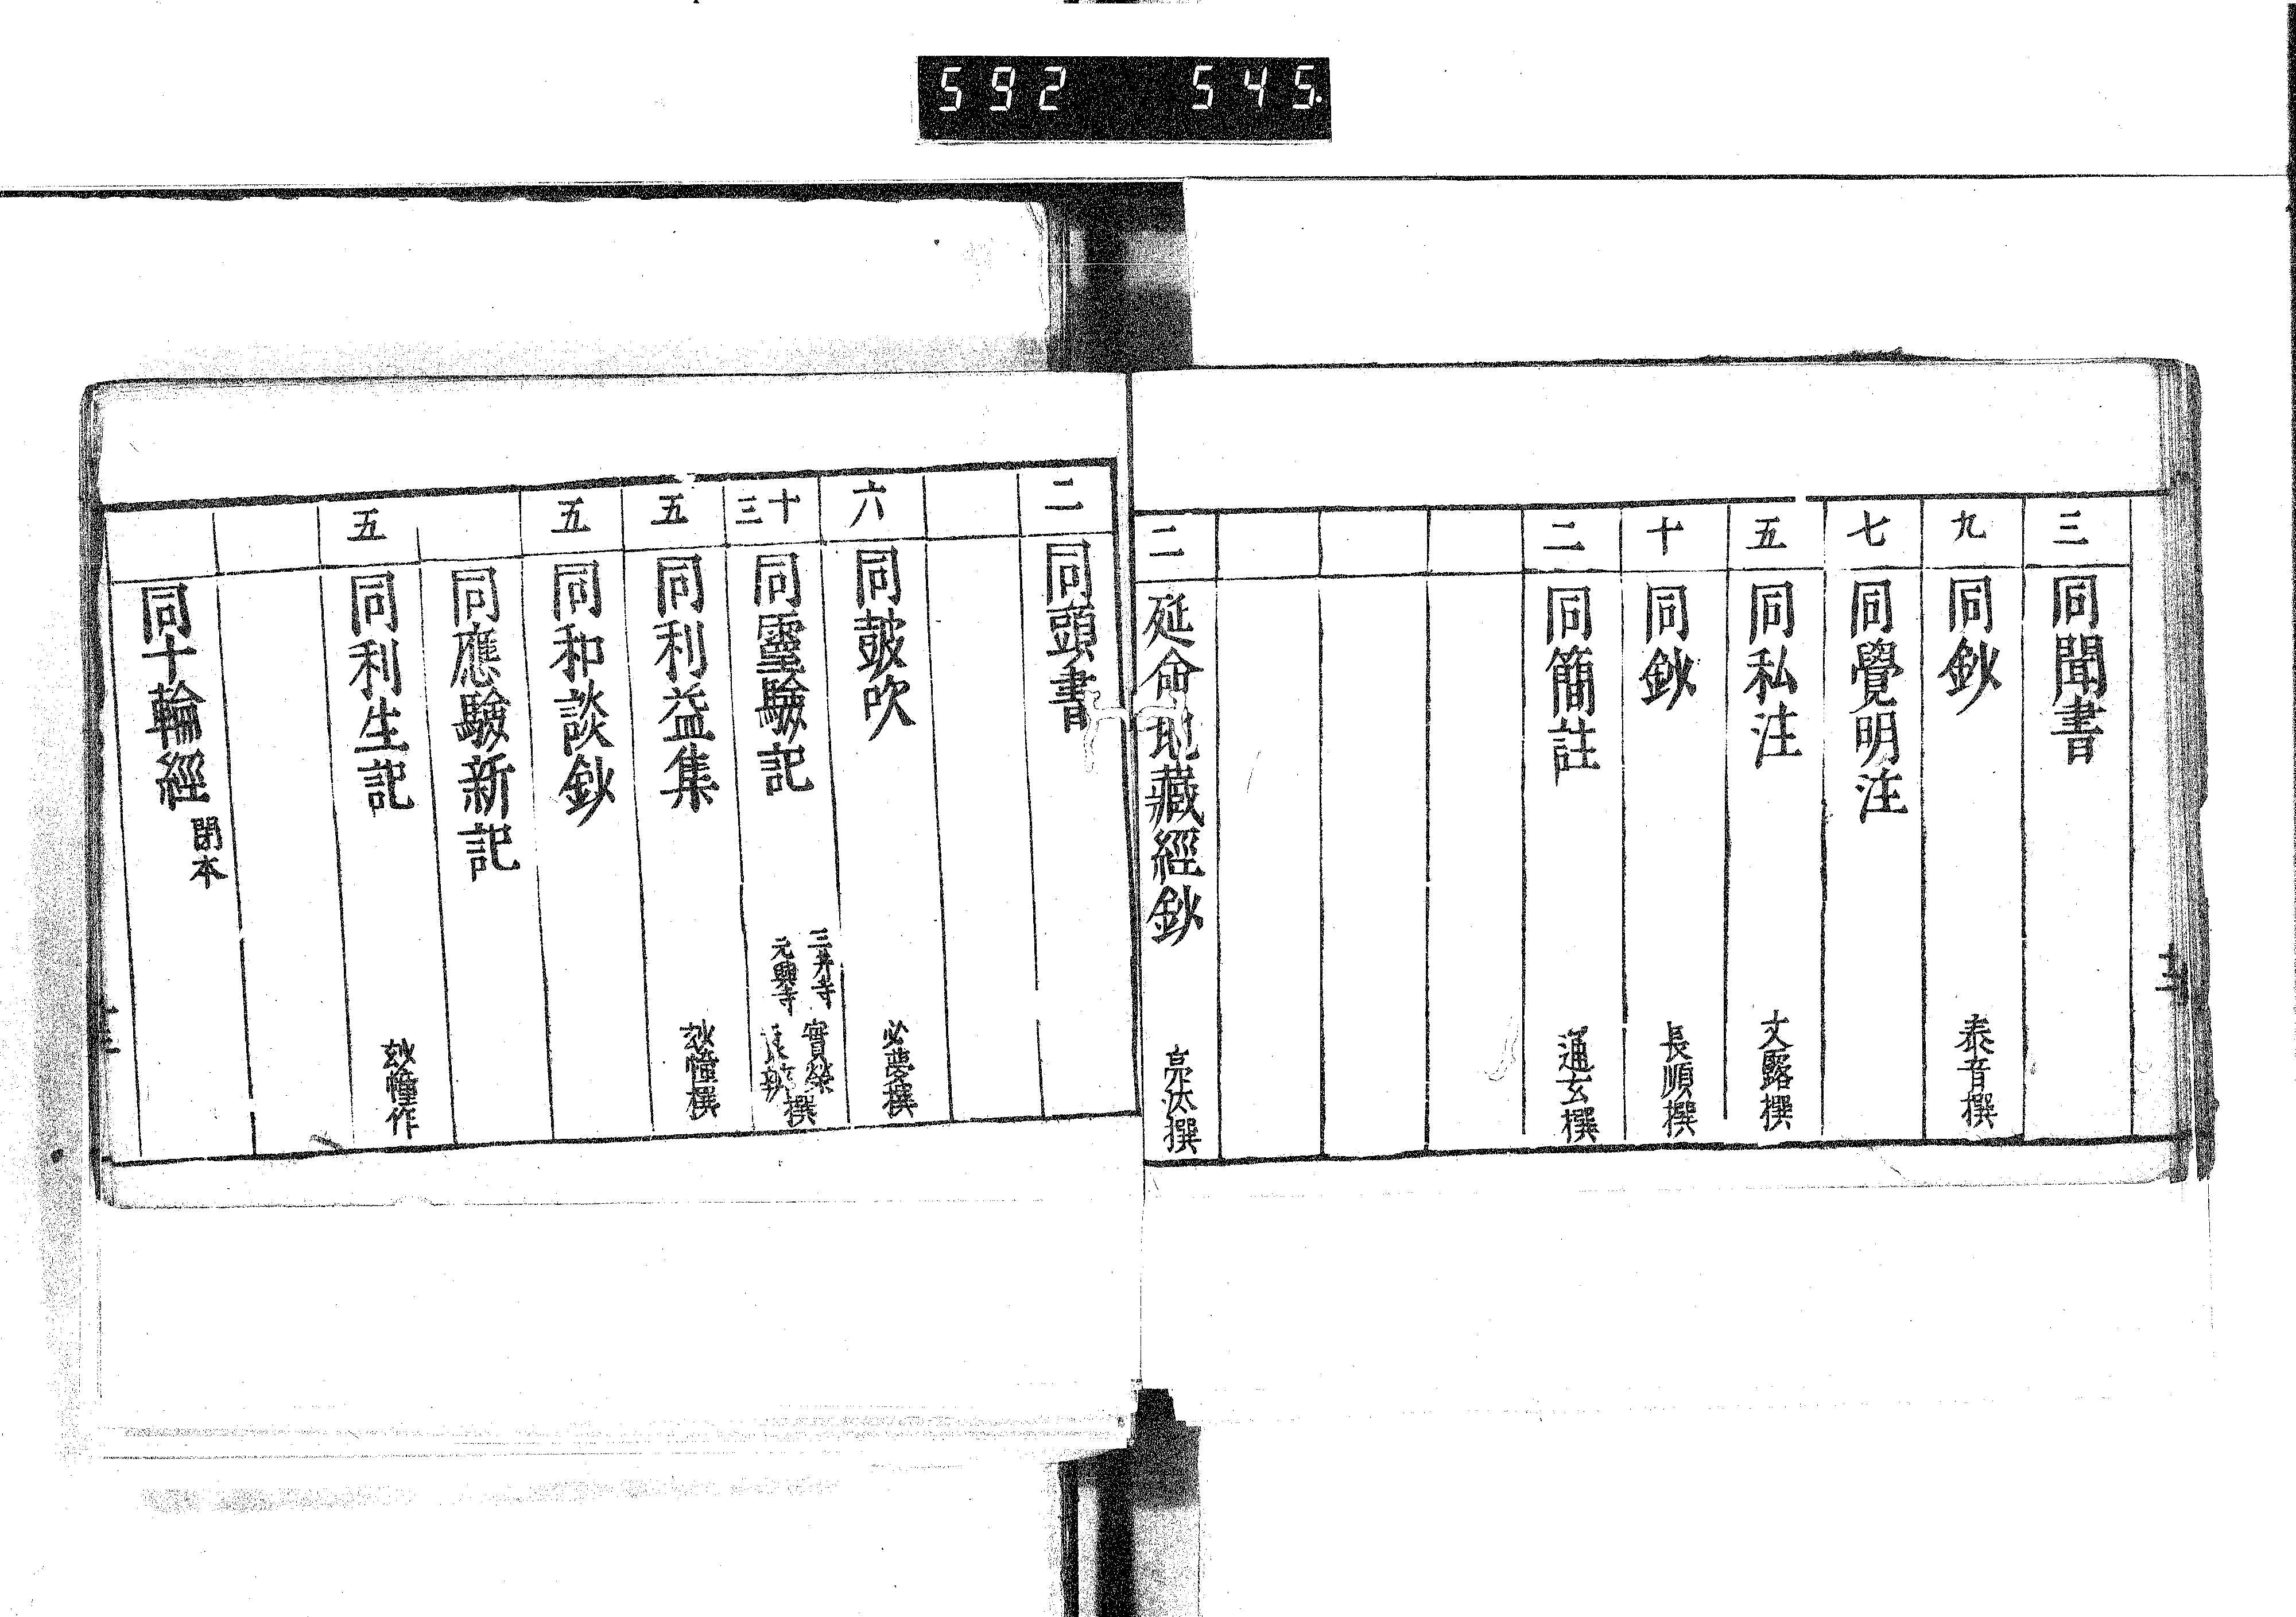 592 545.
三 同聞書
九 同鈔 泰音撰
七 同覺明注
五 同私注 文露撰
十 同鈔 長順撰
二 同簡註 通玄撰
二 延命地藏經鈔 亮汰撰
二 同頭書
六 同皷吹 必夢撰
十三 同靈驗記 三井寺 實榮 元興寺 撰
五 同利益集 玅幢撰
五 同和談鈔
同應驗新記
五 同利生記 玅幢作
同十輪經 閉本